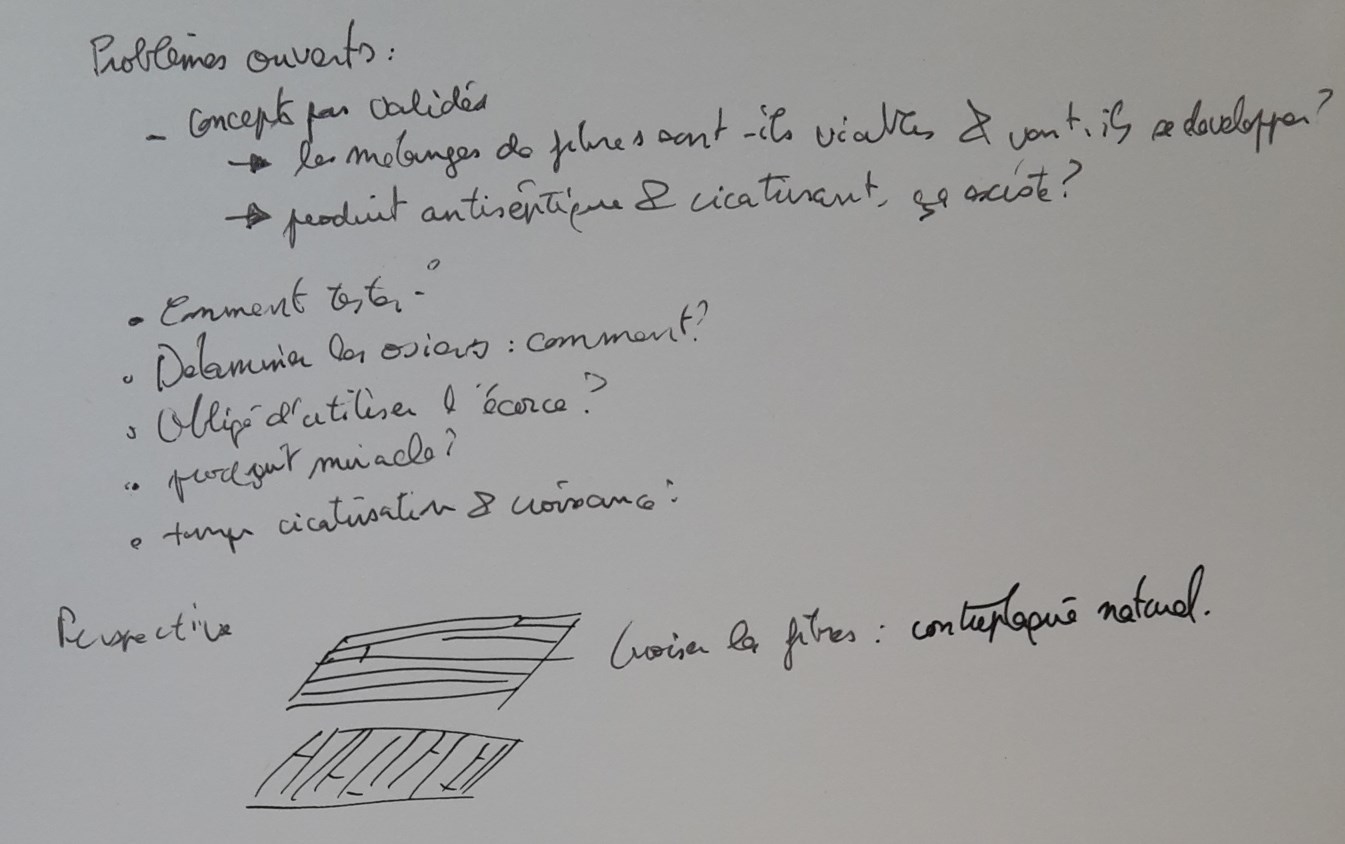 Problèmes ouverts :
- Concepts pas validés
→ les mélanges de fibres sont-ils viables & vont-ils se developper ?
→ produit antiséptique & cicatrisant, ça existe ?
• Comment tester ?
• Determiner les osiers : comment ?
• Obligé d'utiliser l'écorce ?
• produit miracle ?
• temps cicatrisation & croissance :
Perspective
Croiser les fibres : contreplaqué naturel.